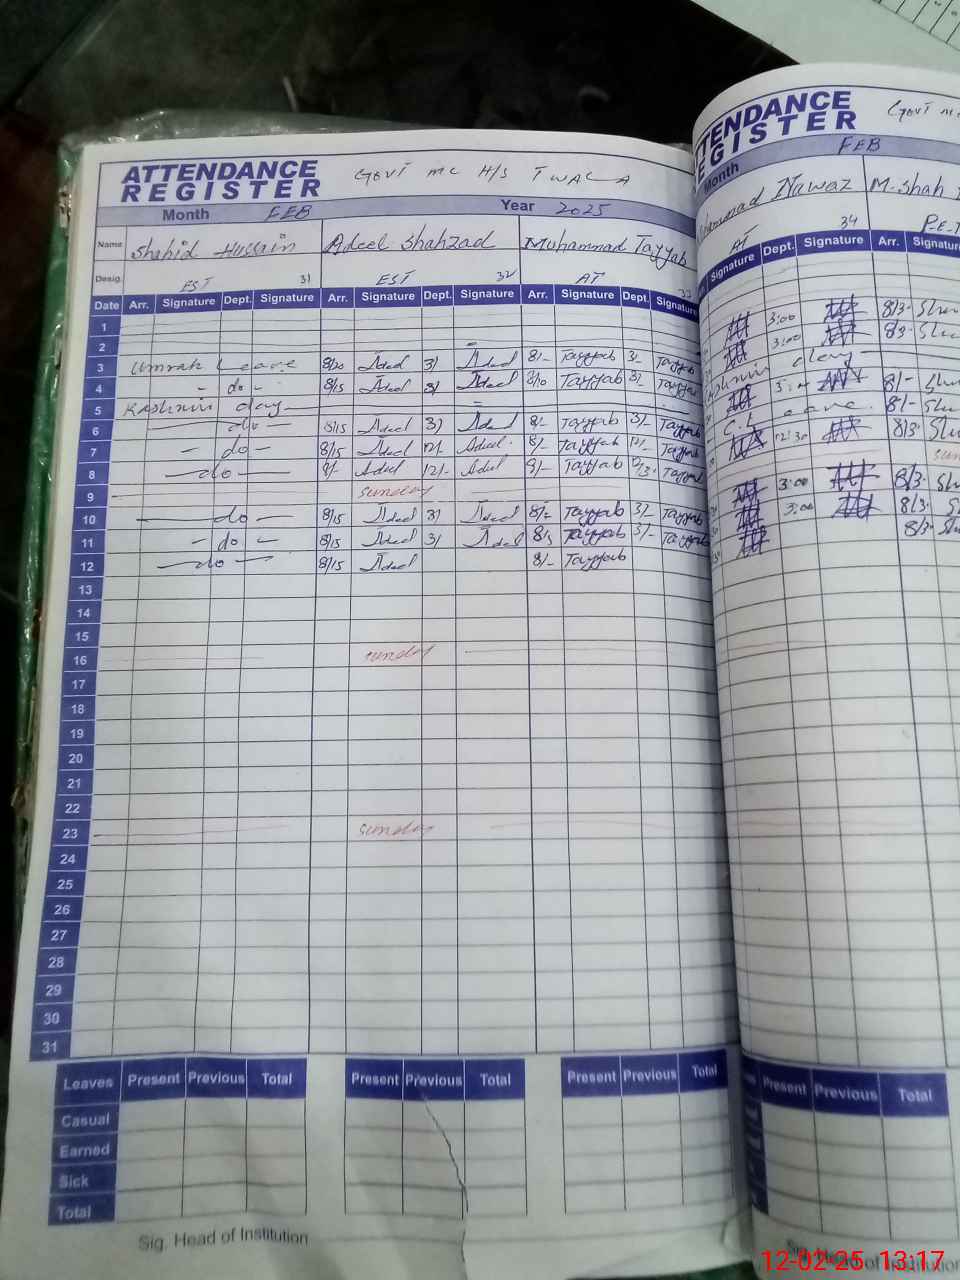 ATTENDANCE REGISTER GOVT MC H/S TWALA
Month FEB Year 2025
Name Shahid Hussain Adeel Shahzad Muhammad Tayyab
Desig. EST 31 EST 32 AT 33
Date Arr. Signature Dept. Signature Arr. Signature Dept. Signature Arr. Signature Dept. Signature
1
2
3 Umrah Leave 8/20 Adeel 3/ Adeel 8/- Tayyab 3/- Tayyab
4 - do - 8/15 Adeel 3/ Adeel 8/10 Tayyab 3/- Tayyab
5 Kashmir day
6 - do - 8/15 Adeel 3/ Adeel 8/- Tayyab 3/- Tayyab
7 - do - 8/15 Adeel 12/- Adeel 8/- Tayyab 12/- Tayyab
8 - do - Adeel 12/- Adeel Tayyab Tayyab
9 Sunday
10 - do - 8/15 Adeel 3/ Adeel 8/- Tayyab 3/- Tayyab
11 - do - 8/15 Adeel 3/ Adeel Tayyab 3/- Tayyab
12 - do - 8/15 Adeel 8/- Tayyab
13
14
15
16 Sunday
17
18
19
20
21
22
23 Sunday
24
25
26
27
28
29
30
31
Leaves Present Previous Total Present Previous Total Present Previous Total
Casual
Earned
Sick
Total
Sig. Head of Institution
TTENDANCE REGISTER GOVT
Month FEB
Nawaz M. Shah
AT 34 P.E.T
Signature Dept. Signature Arr. Signature
3:00 8/3.
3:00 8/3.
day
8/-
C.L eave 8/-
12:30 8/3.
3:00 8/3.
3:00 8/3.
8/3.
Present Previous Total
Sig. Head of Institution
12-02-25 13:17